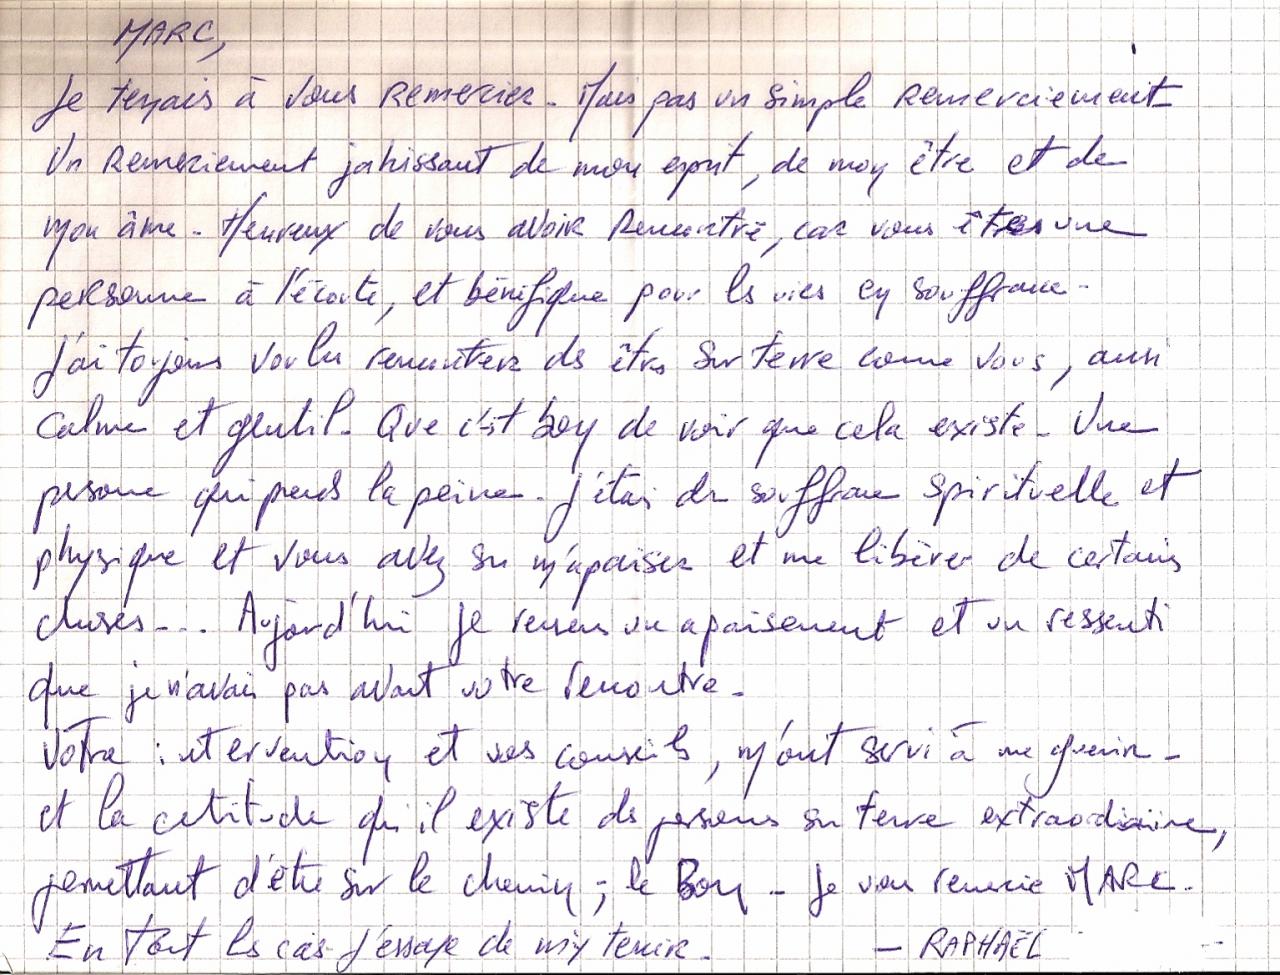 MARC,
Je tenais à vous remercier. Mais pas un simple remerciement
Un remerciement jahissant de mon esprit, de mon être et de
mon âme. Heureux de vous avoir rencontré, car vous êtes une
personne à l'écoute, et bénéfique pour les vies en souffrance.
J'ai toujours voulu rencontrer des êtres sur terre comme vous, aussi
calme et gentil. Que c'est bon de voir que cela existe. Une
personne qui prend la peine. J'étais en souffrance spirituelle et
physique et vous avez su m'apaiser et me libérer de certains
choses... Aujourd'hui je ressens un apaisement et un ressenti
que je n'avais pas avant votre rencontre.
Votre intervention et vos conseils, m'ont servi à me guérir.
et la certitude qu'il existe des personnes sur terre extraordinaire,
permettant d'être sur le chemin ; le Bon. Je vous remercie MARC.
En tout les cas j'essaye de m'y tenir. - RAPHAËL